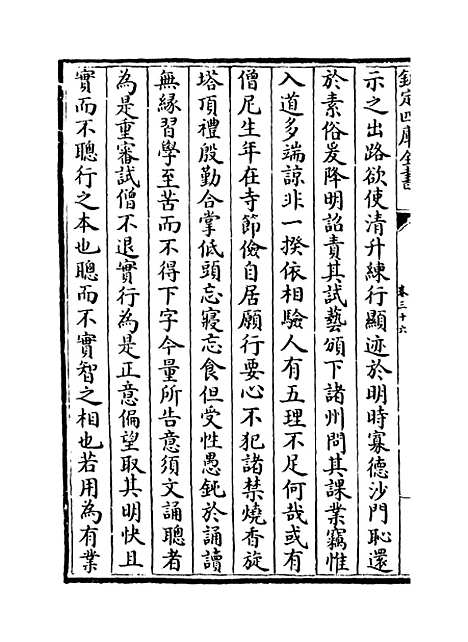 欽定四庫全書
卷三十六
示之出路欲使清升練行顯迹於明時寡德沙門恥還
於素俗爰降明詔責其試藝頒下諸州問其課業竊惟
入道多端諒非一揆依相驗人有五理不足何哉或有
僧尼生年在寺節儉自居願行要心不犯諸禁燒香旋
塔頂禮殷勤合掌低頭忘寢忘食但受性愚鈍於誦讀
無縁習學至苦而不得下字今量所告意須文誦聰者
為是重審試僧不退實行為是正意偏望取其明快且
實而不聰行之本也聰而不實智之相也若用為有業